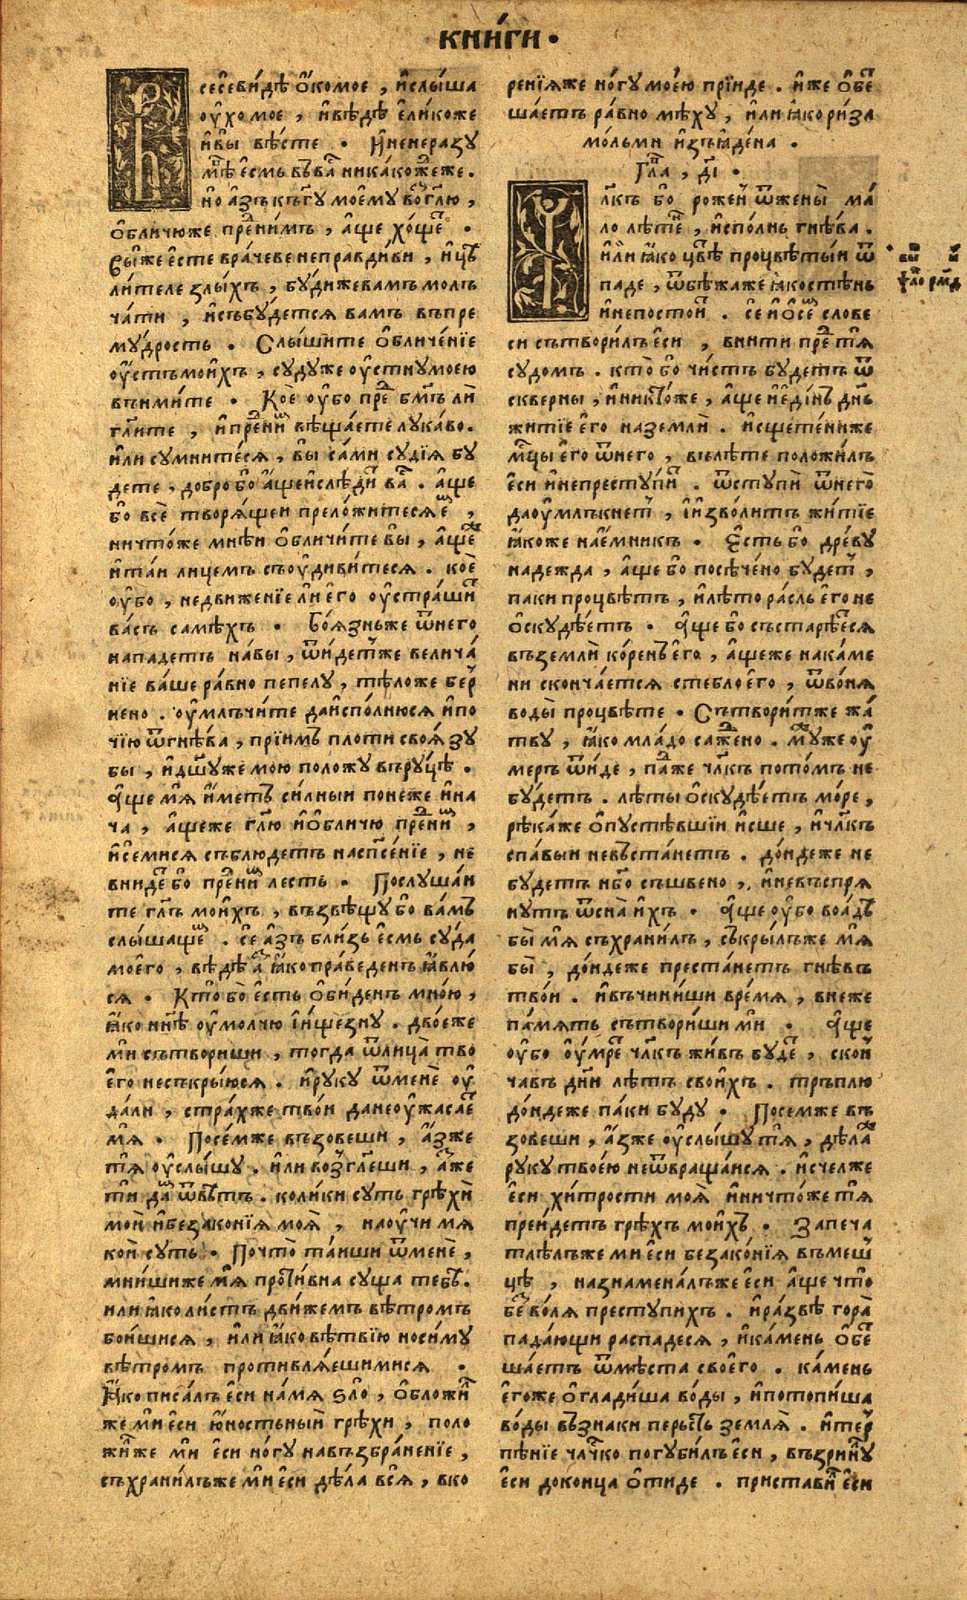 КНИ́ГИ ·
сесе́ви́дѣ ѻ҆́комое , и҆слы́ша
ѹ҆́хо мое , и҆вѣ́дѣ є҆ли́коже
и҆вы̀ вѣ́сте · И҆ненеразу
но а҆́зъ къгу҃ моє́му возг҃лю ,
ѻ҆бличюже пре́ни́мъ , а҆ще хо́ще ·
Вы́же є҆сте вра́чеве неправди́ви , и҆цѣ
ли́теле злы́хъ , бу́ди́жевамъ молъ
ча́ти , и҆събу́детсѧ вамъ въпре
му́дрость · Слы́шите ѻ҆бличе́нїе
ѹ҆стъмои́хъ , су́дуже ѹ҆стнумоєю
въними́те · Ко́є ѹ҆́бо пред̾ бг҃мъ ли
гл҃ите , и҆прени́м̾ вѣща́ете лука́во .
и҆ли сумните́сѧ , вы̀ са́ми судїѧ̀ бу
дете , добро бо а҆́щеи҆слѣ́ди ва . а҆́ще
бо всѐ творѧ́щеи прело́житесѧ ,
ничто́же мнѣ́и ѻ҆бличи́те вы̀ , а҆́ще
и҆та́и лицемъ съѹ҆диви́тесѧ . ко́е
ѹ҆бо , недвиже́нїе ли є҆го ѹ҆стра́ши
ва́съ самѣхъ · Боѧ́зньже ѿнего
нападетъ на́вы , ѿи́детже велича́
нїе ва́ше ра́вно пепелу , тѣложе бер
нено . ѹ҆млъчи́те даи҆спо́лнюсѧ и҆по
чїю ѿгнѣва , прїимъ плоти своѧ̀ зу
бы , и҆дш҃уже мою положу̀ въру́цѣ .
А҆́ще мѧ̀ и҆́меть си́лныи понеже и҆на
ча , а҆́щеже гл҃ю и҆ѻ҆бличю̀ прени́м ,
и҆се́мисѧ съблюдетъ наспсе́нїе , не
вниде́ бо пре́ни́м лесть · Послуша́и
те гл҃ъ мои́хъ , възвѣщу̀ бо ва́мъ
слы́шащим . се а҆́зъ бли́зь є҆смь суда̀
моего̀ , вѣ́дѣ а҆́зъ ꙗ҆коправеденъ ꙗ҆влю
сѧ · Кто̀ бо̀ є҆сть ѻ҆би́денъ мно́ю ,
ꙗ҆ко нн҃ѣ ѹ҆мо́лчю и҆и҆ще́зну . дво́еже
ми съ́твориши , тогда̀ ѿлица̀ тво
є҆го несъкры́юсѧ . и҆руку ѿменѐ ѹ҆
дали , стра́хже тво́и данеѹ҆жаса́е
мѧ̀ · Посе́мже възовеши , а҆́зже
тѧ̀ ѹ҆слы́шу . и҆ли возг҃леши , а҆́зже
ти да́м ѿвѣтъ . коли́ки суть грѣхѝ
мои̑ и҆беззако́нїѧ моѧ̀ , наѹ҆чи́ мѧ
ко́и суть · Почто̀ таи́ши ѿменѐ ,
мни́шиже мѧ̀ проти́вна суща тебѣ .
или ꙗ҆коли́стъ дви́жемъ вѣ́тромъ
бои́шисѧ , и҆лѝ ꙗ҆ковѣ́твїю носи́му
вѣ́тромъ противлѧ́ешимисѧ ·
Ꙗ҆ко писа́лъ є҆си на́мѧ ѕло̀ , ѻ҆бложи́л
же ми є҆си ю҆ностьныѝ грѣхѝ , поло
жи́лже ми є҆си но́гу навъзбра́ненїе ,
съхрани́лъже ми є҆си дѣла всѧ̀ , вко
ренїѧже но́гу моєю прїиде . и҆же ѻ҆бе
ша́етъ ра́вно мѣ́ху , и҆лѝ ꙗ҆кори́за
мо́льми и҆зъꙗ҆де́на .
Гла , д҃і .
л҃къ бо роже́н ѿжены̀ ма́
ло лѣ́те , и҆спо́лнь гнѣва .
и҆ли ꙗ҆ко цвѣ процвѣты́и ѿ
паде , ѿбѣжаже ꙗ҆костѣ́нь
и҆непосто́и . се́ и҆ѻ҆се́м слове
си сътвори́лъ є҆си , вни́ти пре тѧ̀
судомъ . кто̀ бо чи́стъ бу́детъ ѿ
скве́рны , и҆никто́же , а҆́ще и҆е҆ди́нъ дн҃ь
житїе є҆го на земли̑ . и҆сщете́ниже
мц҃ы є҆го ѿнего , въ лѣ́те положи́лъ
є҆си и҆непресту́пи . ѿступи̑ ѿнего̀
даѹ҆млъкнет , и҆и҆зво́литъ жи́тїе
ꙗ҆коже нае́мникъ · Є҆сть бо дре́ву
надежда , а҆́ще бо посѣче́но бу́дет ,
паки процвѣ́тъ , и҆лѣ́торасль є҆го не
ѻ҆скудѣетъ · А҆́ще бо състарѣ́есѧ
въземлѝ ко́рень є҆го , а҆́щеже на каме
ни сконча́етсѧ стебло є҆го , ѿвонѧ̀
воды̀ процвѣте · Сътвори́тже жа́
тву , ꙗ҆ко мла́до саже́но . му́же ѹ҆
меръ ѿи́де , па́же чл҃къ пото́мъ не
бу́детъ . лѣты ѻ҆скудѣ́етъ мо́ре ,
рѣка́же ѻ҆пустѣ́вши и҆сше , и҆чл҃къ
спа́выи невъста́нетъ . до́ндеже не
бу́детъ нб҃о съшвено , и҆невъспрѧ
нутъ ѿсна̀ и҆хъ · А҆́ще ѹ҆́бо воадѣ
бы̀ мѧ̀ съхрани́лъ , съкры́лъже мѧ̀
бы̀ , до́ндеже преста́нетъ гнѣ́въ
тво́и . и҆въчини́ши вре́мѧ , внеже
па́мѧть сътвори́ши ми · А҆́ще
ѹ҆бо ѹ҆́мре чл҃къ жи́въ буде , скон
ча́въ дн҃и лѣтъ свои́хъ . търплю
до́ндеже па́ки буду · Посемже въ
зовеши , а҆́зже ѹ҆слы́шу тѧ̀ , дѣла́
руку твоє́ю неѿвраща́исѧ . и҆счелже
є҆си хи́трости моѧ̀ и҆ничто́же тѧ̀
преи́детъ грѣ́хъ мои́хъ · Запеча
тлѣ́лъже ми є҆си беззако́нїѧ въмеш
цѣ , назнамена́лъже є҆си а҆́ще что̀
бе во́лѧ преступи́хъ . и҆ра́звѣ гора̀
пада́ющи распадесѧ , и҆ка́мень ѻ҆бе
ша́етъ ѿмѣста своє́го . ка́мень
є҆гоже ѻ҆глади́ша во́ды , и҆потопи́ша
во́ды възнаки перьсть землѧ̀ . и҆тер
пѣнїе чл҃чко погуби́лъ є҆си , възри́ну
є҆си доконца ѻ҆ти́де . приста́ви є҆си